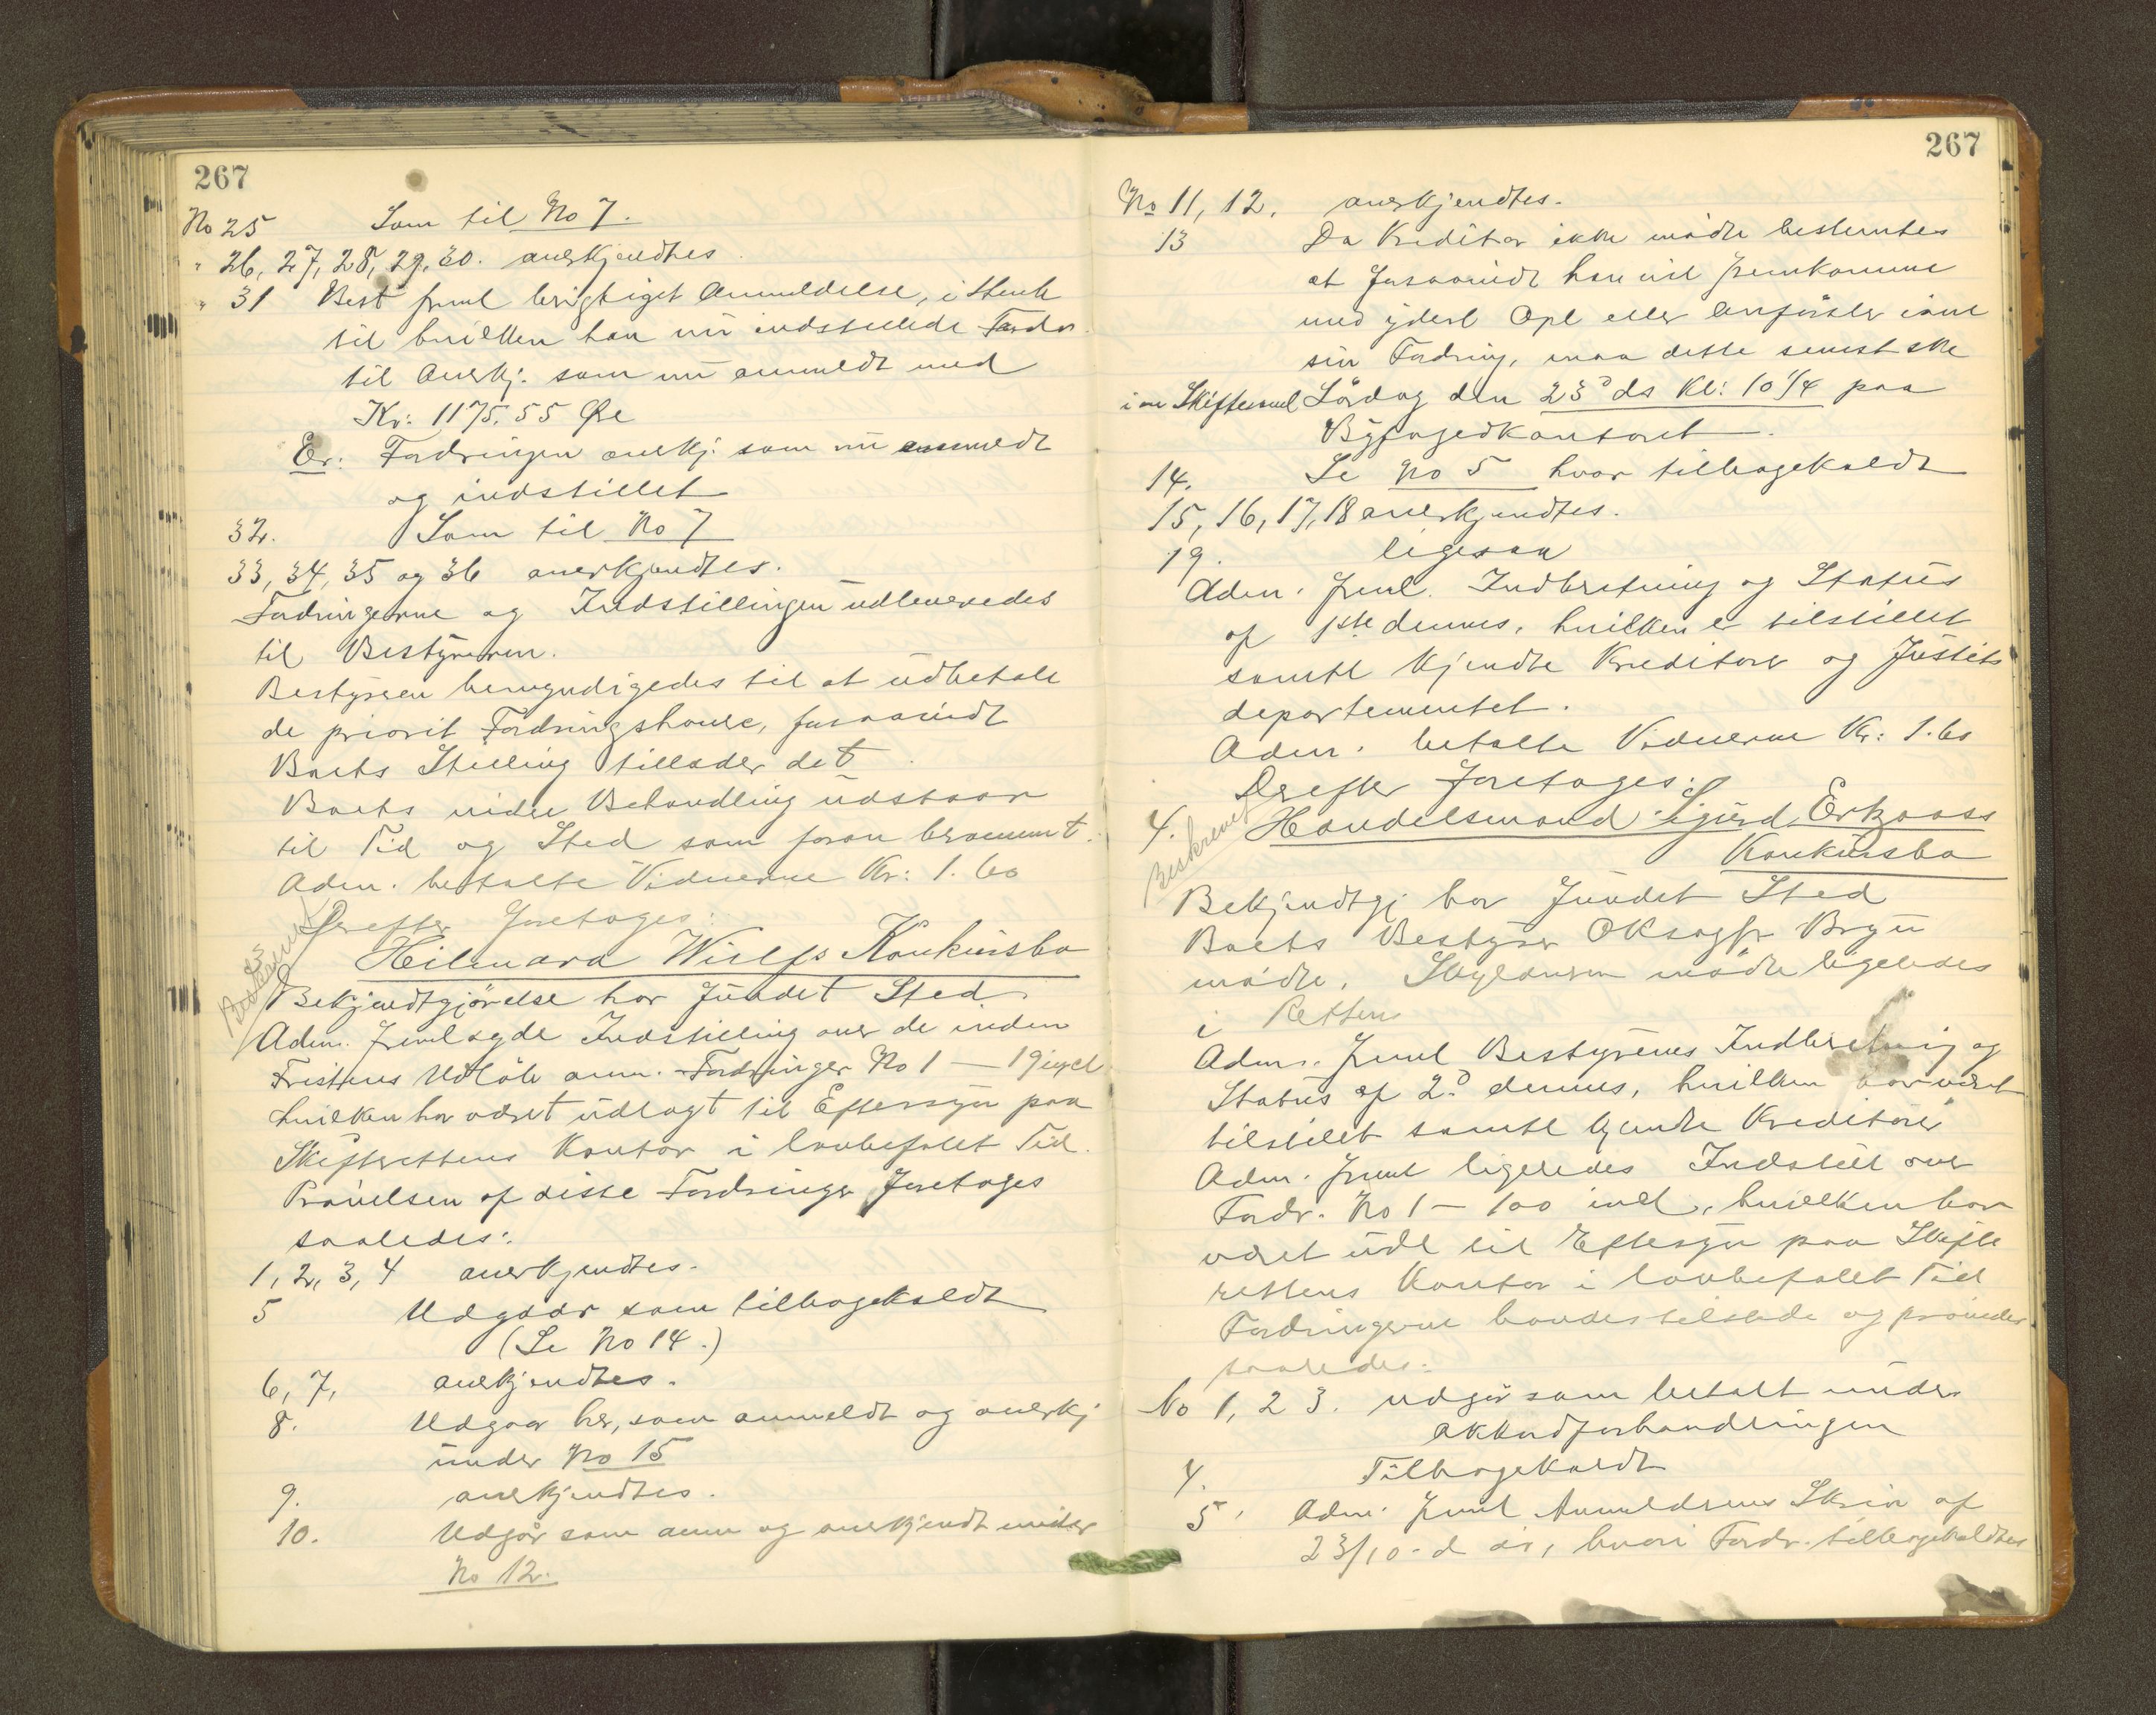 267
No 25 Som til No 7.
" 26, 27, 28, 29, 30. anerkjendtes
" 31 Best freml berigtiget Anmeldelse, i Henh
til hvilken han nu indstillede Fordr.
til Anerkj. som nu anmeldt med
Kr: 1175.55 Øre
Er: Fordringen anerkj. som nu anmeldt
og indstillet
32. Som til No 7
33, 34, 35 og 36 anerkjendtes.
Fordringerne og Indstillingen udleveredes
til Bestyreren.
Bestyreren bemyndigedes til at udbetale
de priorit Fordringshavere, forsaavidt
Boets Stilling tillader det.
Boets videre Behandling udstaar
til Tid og Sted som foran berammet.
Adm. betalte Vidnerne Kr: 1.60
Derefter foretoges:
Beskrevet
3 Hilmard Wulfs Konkursbo
Bekjendtgjørelse har fundet Sted.
Adm. fremlagde Indstilling over de inden
Fristens Udløb anm. Fordringer No 1 — 19 incl
hvilken har været udlagt til Eftersyn paa
Skifterettens Kontor i lovbefalet Tid.
Prøvelsen af disse Fordringer foretoges
saaledes:
1, 2, 3, 4 anerkjendtes.
5 Udgaar som tilbagekaldt
(Se No 14.)
6, 7, anerkjendtes.
8. Udgaar her, som anmeldt og anerkj
under No 15
9. anerkjendtes.
10. Udgår som anm og anerkjendt under
No 12.
267
No 11, 12. anerkjendtes.
13 Da Kreditor ikke mødte bestemtes
at forsaavidt han vil fremkomme
med yderl Opl eller Anførsler i anl
sin Fordring, maa dette senest ske
i en Skiftesaml Lørdag den 23d ds Kl: 10 1/4 paa
Byfogedkontoret.
14. Se No 5 hvor tilbagekaldt
15, 16, 17, 18 anerkjendtes.
19. ligesaa
Adm. freml. Indberetning og Status
af 1ste dennes, hvilken er tilstillet
samtl kjendte Kreditorer og Justits
departementet.
Adm. betalte Vidnerne Kr: 1.60
Derefter foretoges:
Beskrevet
4. Handelsmand Sigurd Erkaass
Konkursbo
Bekjendtgj har fundet Sted
Boets Bestyrer OKsagfr Bryn
mødte. Skyldneren mødte ligeledes
i Retten
Adm. freml Bestyrerens Indberetning og
Status af 2d dennes, hvilken har været
tilstillet samtl kjendte Kreditorer
Adm. freml ligeledes Indstill over
Fordr. No 1 — 100 incl, hvilken har
været udl til Eftersyn paa Skifte
rettens Kontor i lovbefalet Tid
Fordringerne havdes tilstede og prøvedes
saaledes:
No 1, 2 3. udgår som betalt under
Akkordforhandlingen
4. Tilbagekaldt
5. Adm. freml Anmelderens Skriv af
23/10 d år, hvori Fordr. tilbagekaldtes